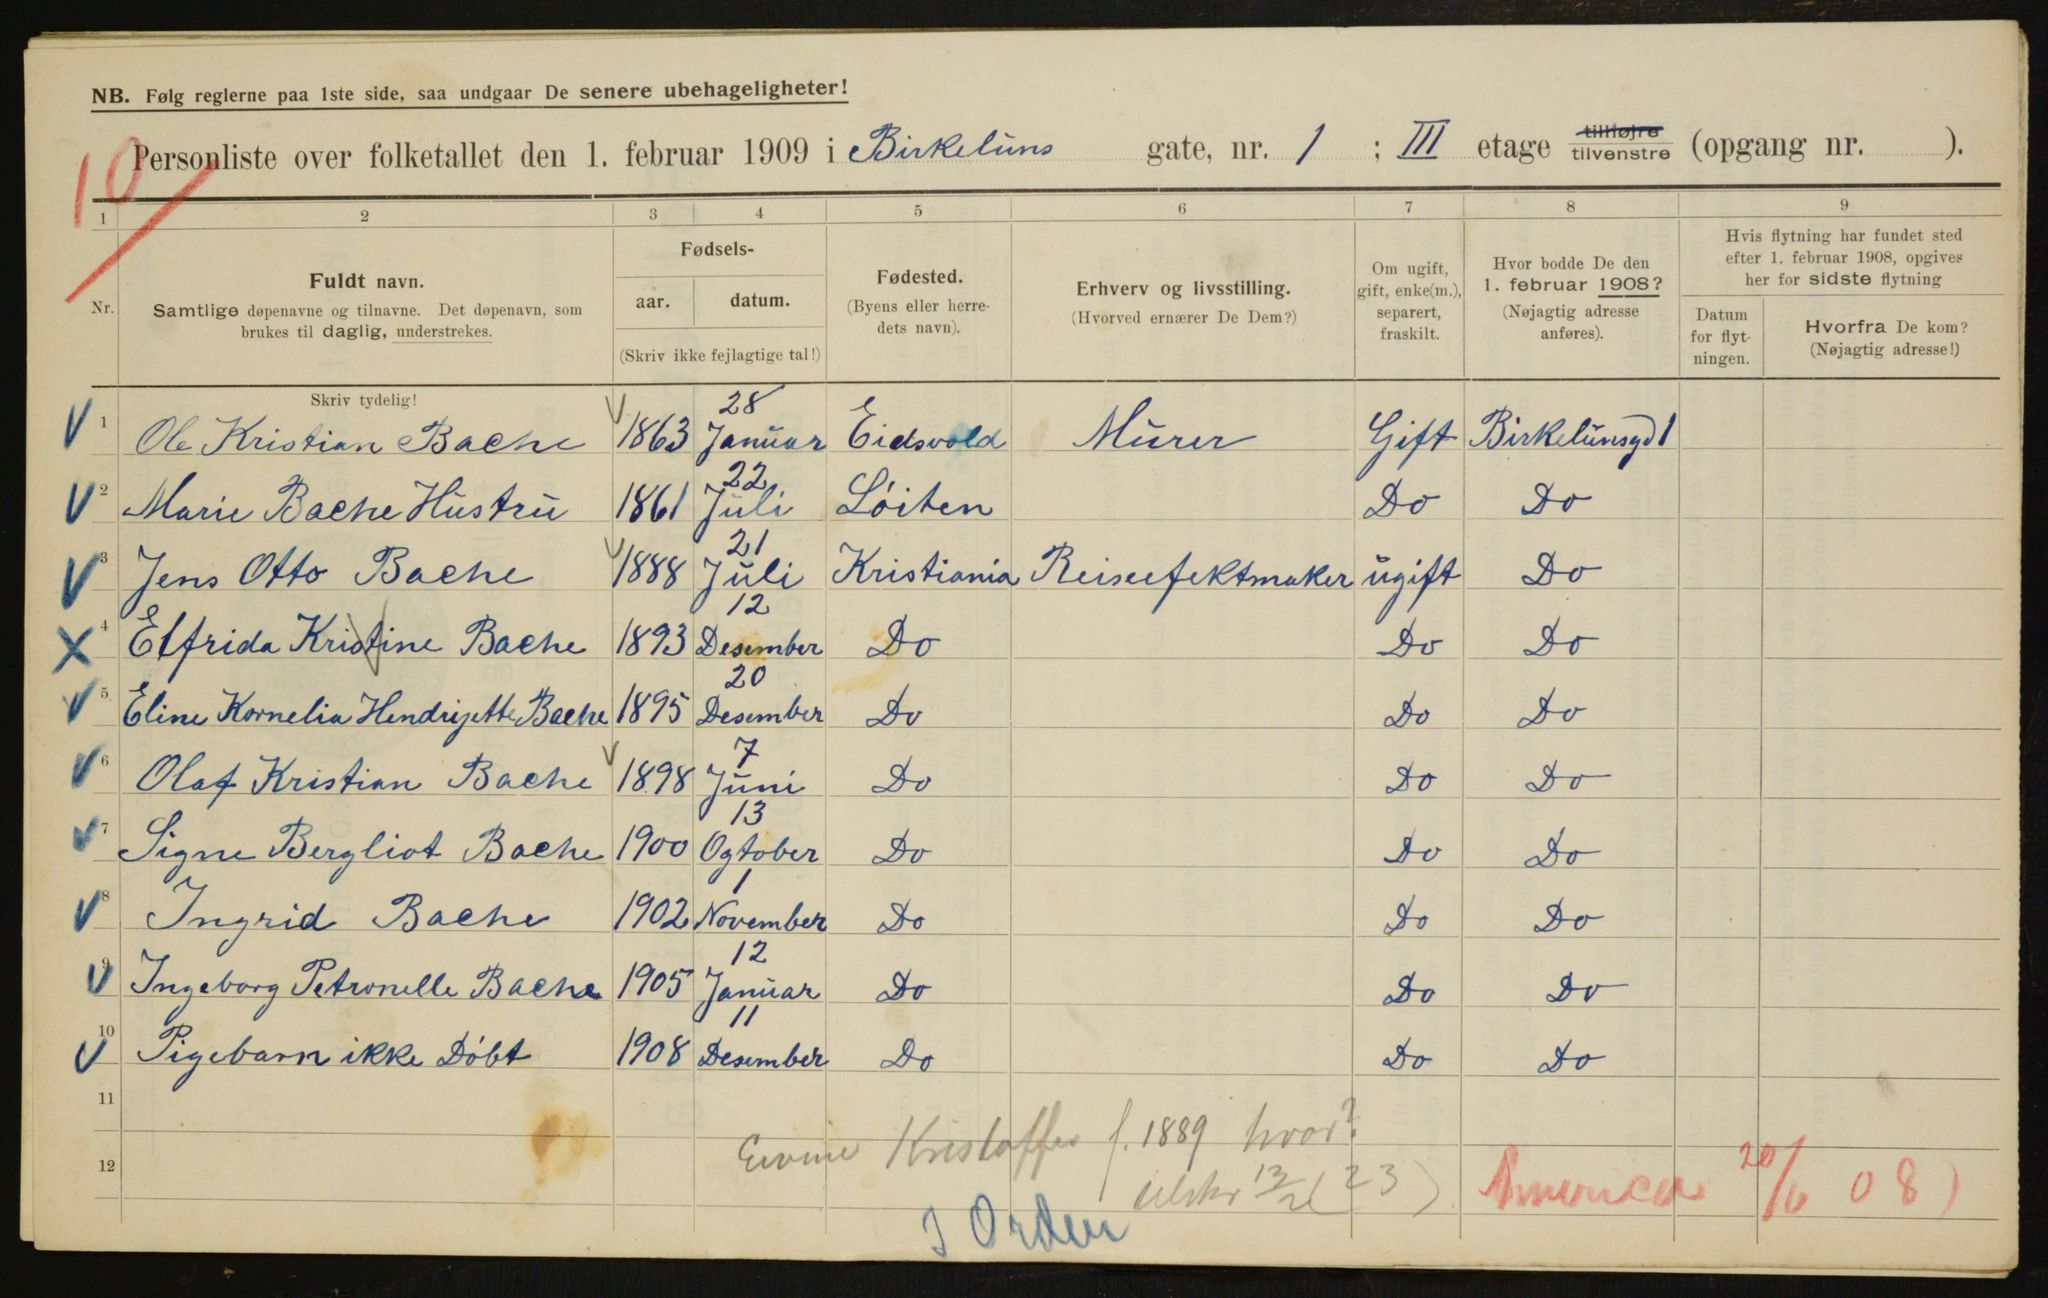 NB. Følg reglerne paa 1ste side, saa undgaar De senere ubehageligheter!
10
Personliste over folketallet den 1. februar 1909 i Birkeluns gate, nr. 1 ; III etage tilhøjre tilvenstre (opgang nr. ).
1 2 3 4 5 6 7 8 9
Nr.
Fuldt navn.
Samtlige døpenavne og tilnavne. Det døpenavn, som
brukes til daglig, understrekes.
Fødsels-
aar. datum.
(Skriv ikke fejlagtige tal!)
Fødested.
(Byens eller herre-
dets navn).
Erhverv og livsstilling.
(Hvorved ernærer De Dem?)
Om ugift,
gift, enke(m.),
separert,
fraskilt.
Hvor bodde De den
1. februar 1908?
(Nøjagtig adresse
anføres).
Hvis flytning har fundet sted
efter 1. februar 1908, opgives
her for sidste flytning
Datum
for flyt-
ningen.
Hvorfra De kom?
(Nøjagtig adresse!)
Skriv tydelig!
1 Ole Kristian Bache 1863 28 Januar Eidsvold Murer Gift Birkelunsgd 1
2 Marie Bache Hustru 1861 22 Juli Löiten Do Do
3 Jens Otto Bache 1888 21 Juli Kristiania Reiseefektmaker ugift Do
4 Elfrida Kristine Bache 1893 12 Desember Do Do Do
5 Eline Kornelia Hendrijette Bache 1895 20 Desember Do Do Do
6 Olaf Kristian Bache 1898 7 Juni Do Do Do
7 Signe Bergliot Bache 1900 13 Ogtober Do Do Do
8 Ingrid Bache 1902 1 November Do Do Do
9 Ingeborg Petronelle Bache 1905 12 Januar Do Do Do
10 Pigebarn ikke Döbt 1908 11 Desember Do Do Do
11
f. 1889 hvor?
12
America 20/6 08)
I Orden